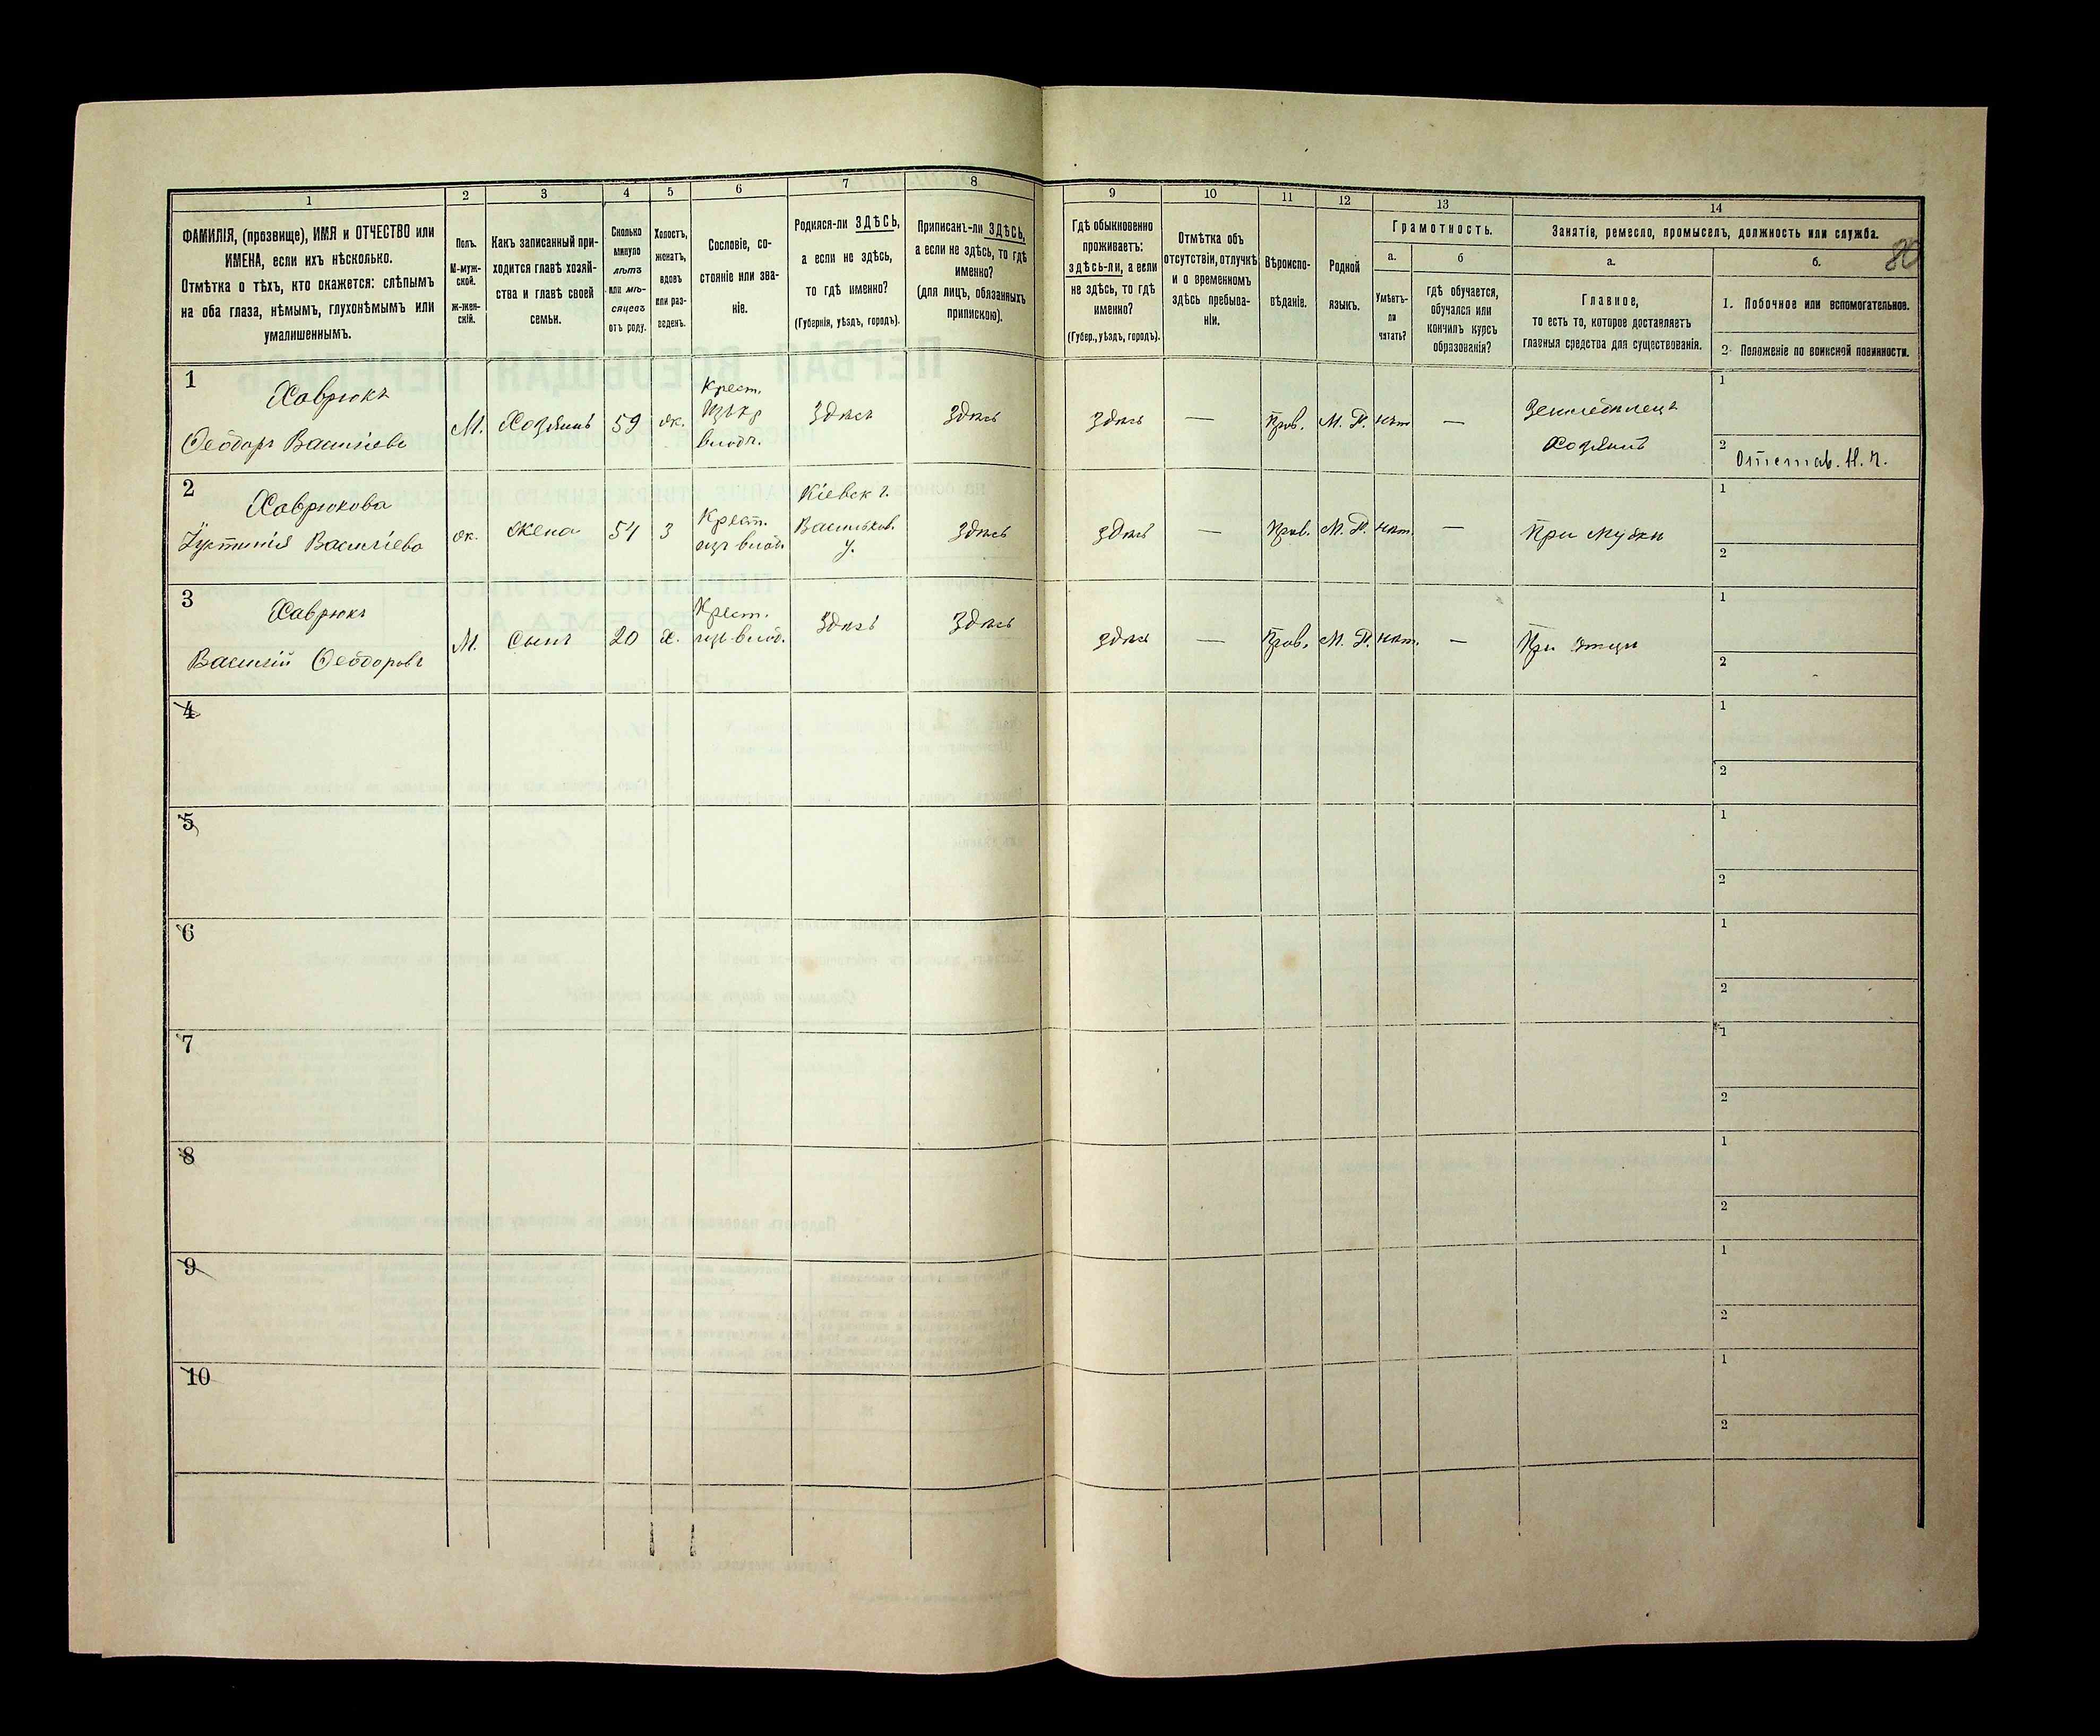 80
1
2
3
4
5
6
7
8
9
10
11
12
13
14
ФАМИЛІЯ, (прозвище), ИМЯ и ОТЧЕСТВО или
ИМЕНА, если ихъ нѣсколько.
Отмѣтка о тѣхъ, кто окажется: слѣпымъ
на оба глаза, нѣмымъ, глухонѣмымъ или
умалишеннымъ.
Полъ.
М-муж-
ской.
ж-жен-
скій.
Какъ записанный при-
ходится главѣ хозяй-
ства и главѣ своей
семьи.
Сколько
минуло
лѣтъ
или мѣ-
сяцевъ
отъ роду.
Холостъ,
женатъ,
вдовъ
или раз-
веденъ.
Сословіе, со-
стояніе или зва-
ніе.
Родился-ли ЗДѢСЬ,
а если не здѣсь,
то гдѣ именно?
(Губернія, уѣздъ, городъ).
Приписанъ-ли ЗДѢСЬ,
а если не здѣсь, то гдѣ
именно?
(для лицъ, обязанныхъ
припискою).
Гдѣ обыкновенно
проживаетъ:
здѣсь-ли, а если
не здѣсь, то гдѣ
именно?
(Губер., уѣздъ, городъ).
Отмѣтка объ
отсутствіи, отлучкѣ
и о временномъ
здѣсь пребыва-
ніи.
Вѣроиспо-
вѣданіе.
Родной
языкъ.
Грамотность.
а.
Умѣетъ-
ли
читать?
б
гдѣ обучается,
обучался или
кончилъ курсъ
образованія?
Занятіе, ремесло, промыселъ, должность или служба.
а.
Главное,
то есть то, которое доставляетъ
главныя средства для существованія.
б.
1. Побочное или вспомогательное.
2. Положеніе по воинской повинности.
1
Хаврюкъ
Ѳеодоръ Васильевъ
М.
Хозяинъ
59
ж.
Крест.
владѣ.
Здѣсь
Здѣсь
здѣсь
—
Прав.
М. Р.
нѣт
—
Земледѣлецъ
Хозяинъ
1
2
2
Хаврюкова
Іустинія Васильева
ж.
Жена
54
З
Крест.
изъ влад.
Кіевск г.
Васильков.
У.
Здѣсь
здѣсь
—
Прав.
М. Р.
нѣт.
—
При мужѣ
1
2
3
Хаврюкъ
Василій Ѳеодоровъ
М.
Сынъ
20
Х.
Крест.
изъ влад.
Здѣсь
Здѣсь
здѣсь
—
Прав.
М. Р.
нѣт.
—
При отцѣ
1
2
4
1
2
5
1
2
6
1
2
7
1
2
8
1
2
9
1
2
10
1
2